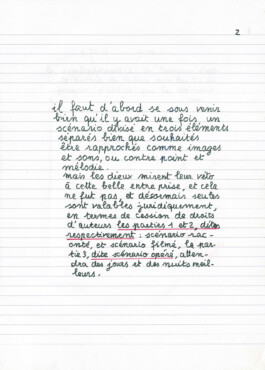 2
il faut d'abord se sous venir
bien qu'il y avait une fois, un
scénario divisé en trois éléments
séparés bien que souhaités
être rapprochés comme images
et sons, ou contre point et
mélodie.
mais les dieux mirent leur véto
à cette belle entre prise, et cela
ne fut pas, et désormais seules
sont valables juridiquement,
en termes de cession de droits
d'auteurs les parties 1 et 2, dites
respectivement : scénario rac-
onté, et scénario filmé, la par
tie 3, dite scénario opéré, atten-
dra des jours et des nuits meil-
leurs.